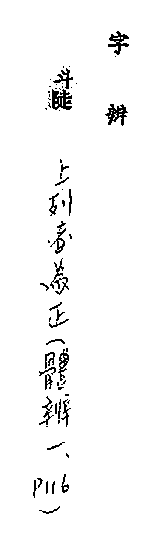 字辨
斗陡
上列音為正（體辨一、P116）